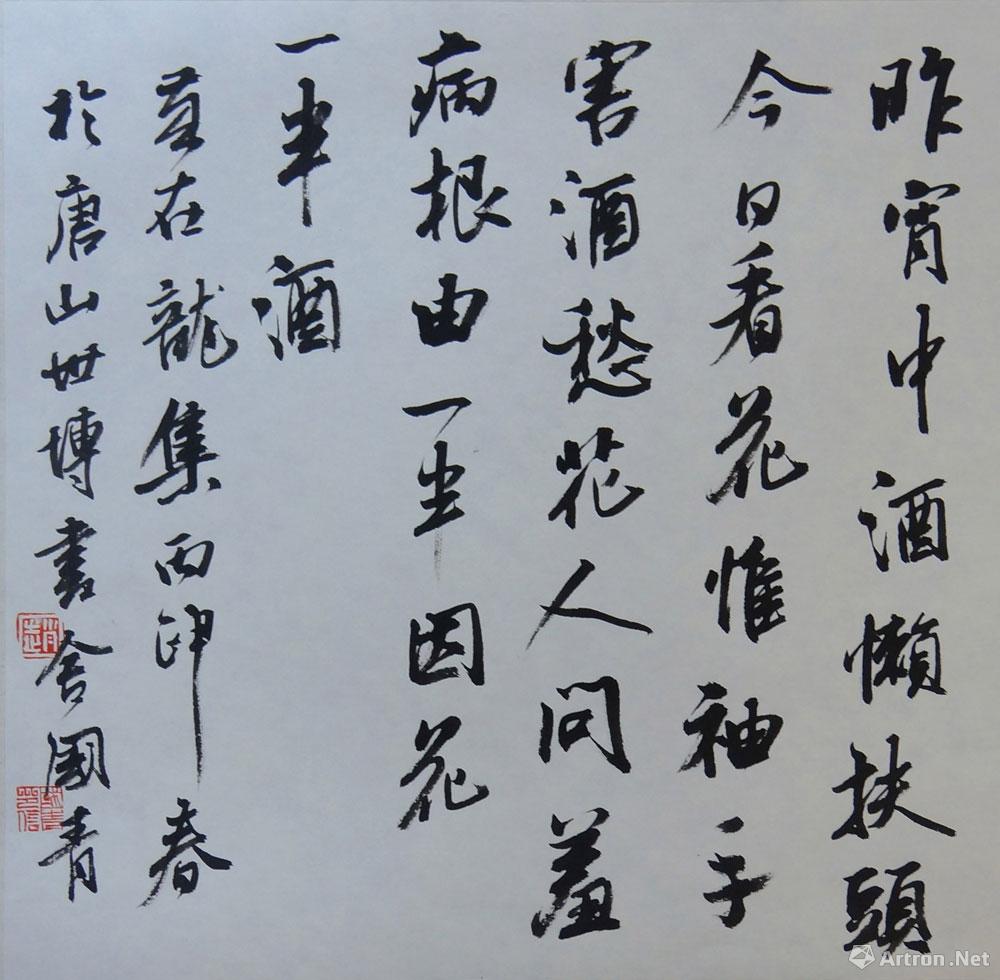 昨宵中酒懶扶頭
今日看花惟袖手
害酒愁花人問羞
病根由一半因花
一半酒
歲在龍集丙申春
於唐山世博書舍國青
Artron.Net